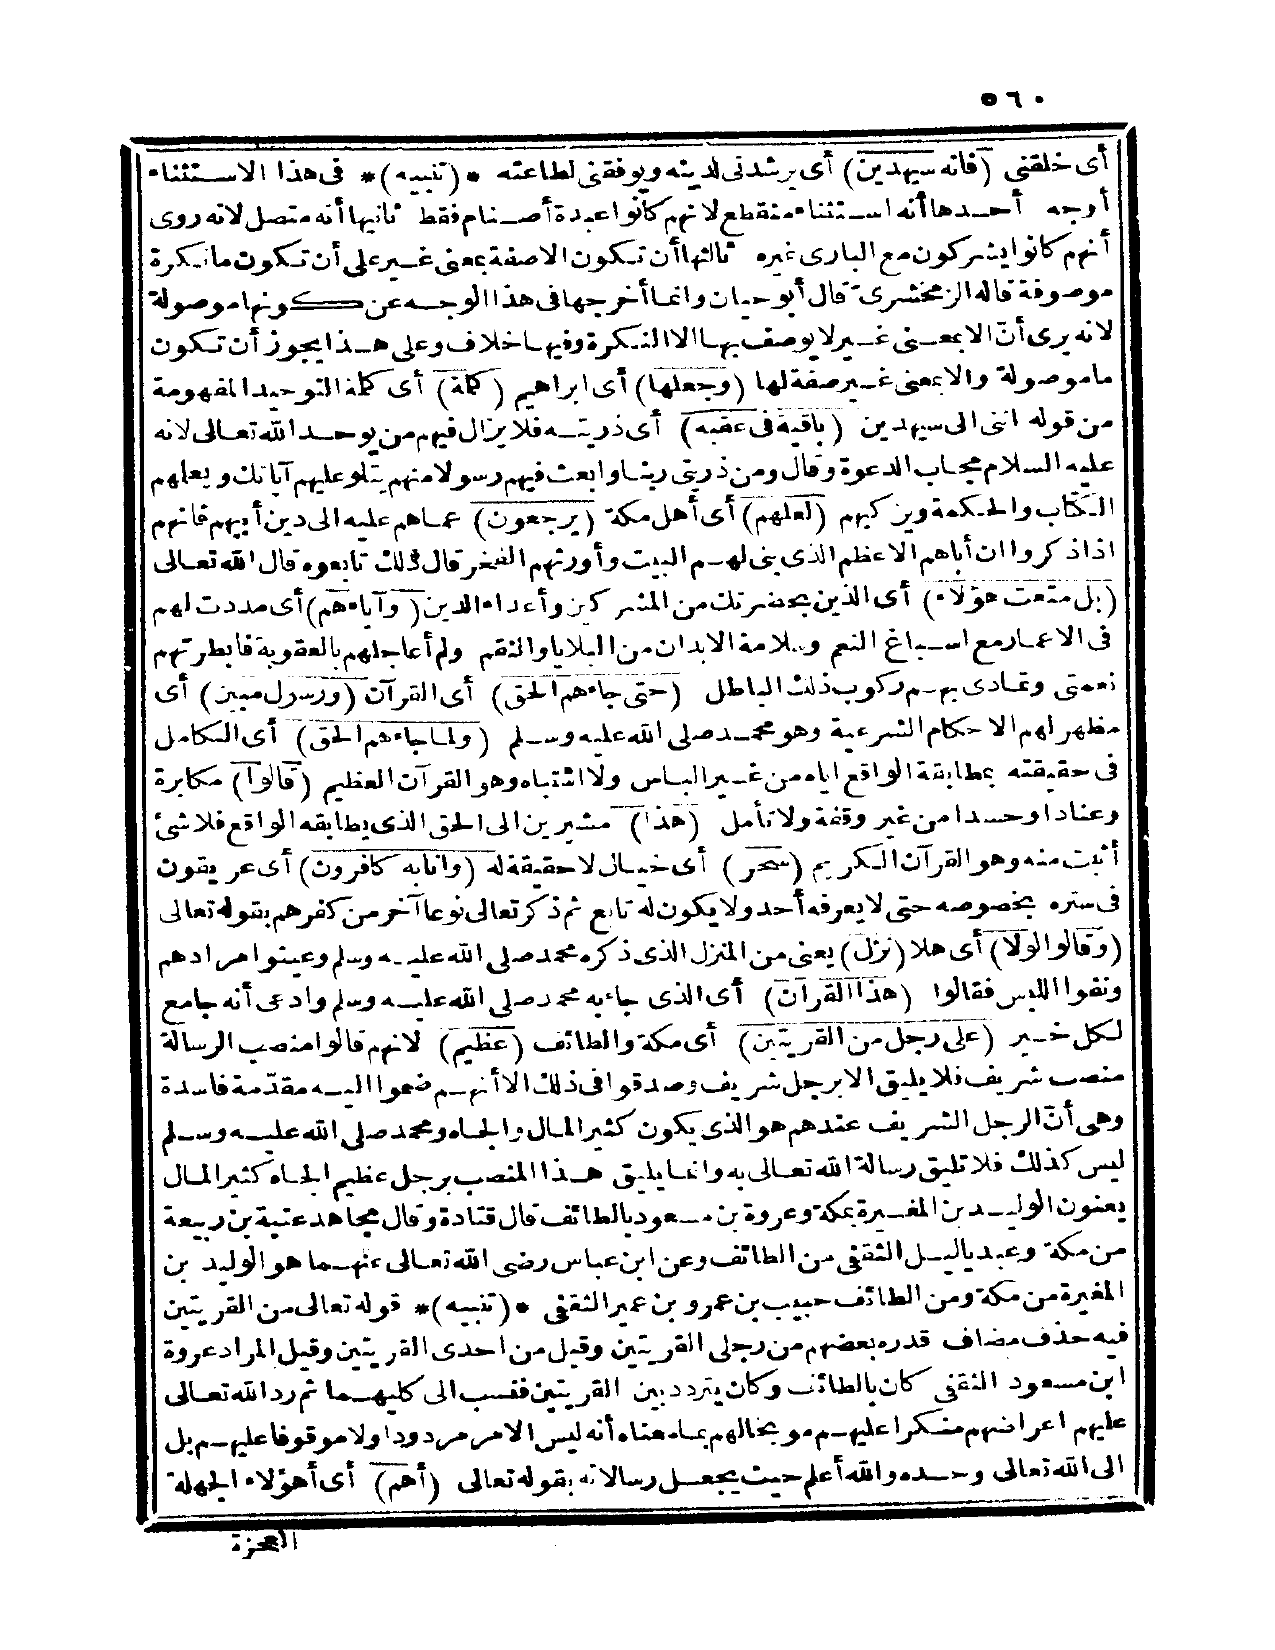 ٥٦٠
أى خلقنى (فانه سيهدين) أى يرشدنى لدينه ويوفقنى لطاعته *(تنبيه)* فى هذا الاستثناء
أوجه أحدها أنه استثناء منقطع لانهم كانوا عبدة أصنام فقط ثانيها أنه متصل لانه روى
أنهم كانوا يشركون مع البارى غيره ثالثها أن تكون الاصفة بمعنى غير على أن تكون ما نكرة
موصوفة قاله الزمخشرى قال أبو حيان وانما أخرجها فى هذا الوجه عن كونها موصولة
لانه يرى أنّ الا بمعنى غير لا يوصف بها الا النكرة وفيها خلاف وعلى هذا يجوز أن تكون
ما موصولة والا بمعنى غير صفة لها (وجعلها) أى ابراهيم (كلمة) أى كلمة التوحيد المفهومة
من قوله اننى الى سيهدين (باقية فى عقبه) أى ذريته فلا يزال فيهم من يوحد الله تعالى لانه
عليه السلام مجاب الدعوة وقال ومن ذريتى ربنا وابعث فيهم رسولا منهم يتلو عليهم آياتك ويعلمهم
الكتاب والحكمة ويزكيهم (لعلهم) أى أهل مكة (يرجعون) عما هم عليه الى دين أبيهم فانهم
اذا ذكروا ان أباهم الاعظم الذى بنى لهم البيت وأورثهم الفخر قال ذلك تابعوه قال الله تعالى
(بل متعت هؤلاء) أى الذين بحضرتك من المشركين وأعداء الدين (وآباءهم) أى مددت لهم
فى الاعمار مع اسباغ النعم وسلامة الابدان من البلايا والنقم ولم أعاجلهم بالعقوبة فابطرتهم
نعمتى وتمادى بهم ركوب ذلك الباطل (حتى جاءهم الحق) أى القرآن (ورسول مبين) أى
مظهر لهم الاحكام الشرعية وهو محمد صلى الله عليه وسلم (ولما جاءهم الحق) أى الكامل
فى حقيقته بمطابقة الواقع اياه من غير الباس ولا اشتباه وهو القرآن العظيم (قالوا) مكابرة
وعنادا وحسدا من غير وقفة ولا تأمل (هذا) مشيرين الى الحق الذى يطابقه الواقع فلا شئ
أثبت منه وهو القرآن الكريم (سحر) أى خيال لا حقيقة له (وانا به كافرون) أى عريقون
فى ستره بخصوصه حتى لا يعرفه أحد ولا يكون له تابع ثم ذكر تعالى نوعا آخر من كفرهم بقوله تعالى
(وقالوا لولا) أى هلا (نزل) يعنى من المنزل الذى ذكره محمد صلى الله عليه وسلم وعينوا مرادهم
ونفوا اللبس فقالوا (هذا القرآن) أى الذى جاء به محمد صلى الله عليه وسلم وادعى أنه جامع
لكل خير (على رجل من القريتين) أى مكة والطائف (عظيم) لانهم قالوا منصب الرسالة
منصب شريف فلا يليق الا برجل شريف وصدقوا فى ذلك الا أنهم ضموا اليه مقدّمة فاسدة
وهى أنّ الرجل الشريف عندهم هو الذى يكون كثير المال والجاه ومحمد صلى الله عليه وسلم
ليس كذلك فلا تليق رسالة الله تعالى به وانما يليق هذا المنصب برجل عظيم الجاه كثير المال
يعنون الوليد بن المغيرة بمكة وعروة بن مسعود بالطائف قال قتادة وقال مجاهد عتبة بن ربيعة
من مكة وعبد ياليل الثقفى من الطائف وعن ابن عباس رضى الله تعالى عنهما هو الوليد بن
المغيرة من مكة ومن الطائف حبيب بن عمرو بن عمير الثقفى *(تنبيه)* قوله تعالى من القريتين
فيه حذف مضاف قدره بعضهم من رجلى القريتين وقيل من احدى القريتين وقيل المراد عروة
ابن مسعود الثقفى كان بالطائف وكان يتردد بين القريتين فنسب الى كليهما ثم رد الله تعالى
عليهم اعراضهم منكرا عليهم موبخا لهم بما معناه أنه ليس الامر مردودا ولا موقوفا عليهم بل
الى الله تعالى وحده والله أعلم حيث يجعل رسالاته بقوله تعالى (أهم) أى أهؤلاء الجهلة
العجزة